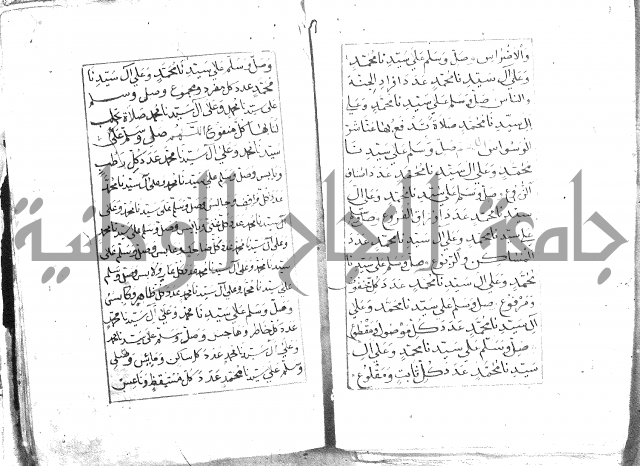 والاضراس وصل وسلم على سيدنا محمد
وعلى آل سيدنا محمد عدد افراد الجنة
والناس صل وسلم على سيدنا محمد وعلى
آل سيدنا محمد صلاة تدفع بها عنا شر
الوسواس وصل وسلم على سيدنا
محمد وعلى آل سيدنا محمد عدد
وصل وسلم على سيدنا محمد وعلى آل
سيدنا محمد عدد اوراق الفروع صل
وسلم على سيدنا محمد وعلى آل سيدنا محمد عدد
المساكن والربوع وصل وسلم على سيدنا
محمد وعلى آل سيدنا محمد عدد كل
ومرفوع صل وسلم على سيدنا محمد وعلى
آل سيدنا محمد عدد كل موصول ومقطوع
صل وسلم على سيدنا محمد وعلى آل
سيدنا محمد عدد كل ثابت ومقلوع
وصل وسلم على سيدنا محمد وعلى آل سيدنا
محمد عدد كل مفرد ومجموع وصل وسلم
على سيدنا محمد وعلى آل سيدنا محمد صلاة تجلب
لنا بها كل منفوع اللهم صل وسلم على
سيدنا محمد وعلى آل سيدنا محمد عدد كل رطب
ويابس وصل وسلم على سيدنا محمد وعلى آل سيدنا محمد
عدد كل وجالس وصل وسلم على سيدنا محمد وعلى
آل سيدنا محمد عدد كل وصل وسلم على سيدنا محمد
وعلى آل سيدنا محمد عدد كل وصل وسلم على
سيدنا محمد وعلى آل سيدنا محمد عدد كل عار ولابس وصل وسلم
على سيدنا محمد وعلى آل سيدنا محمد عدد كل
وصل وسلم على سيدنا محمد وعلى آل سيدنا محمد
عدد كل خاطر وهاجس وصل وسلم على سيدنا محمد
وعلى آل سيدنا محمد عدد كل وصل
وسلم على سيدنا محمد عدد كل مستيقظ وناعس
جامعة النجاح الوطنية